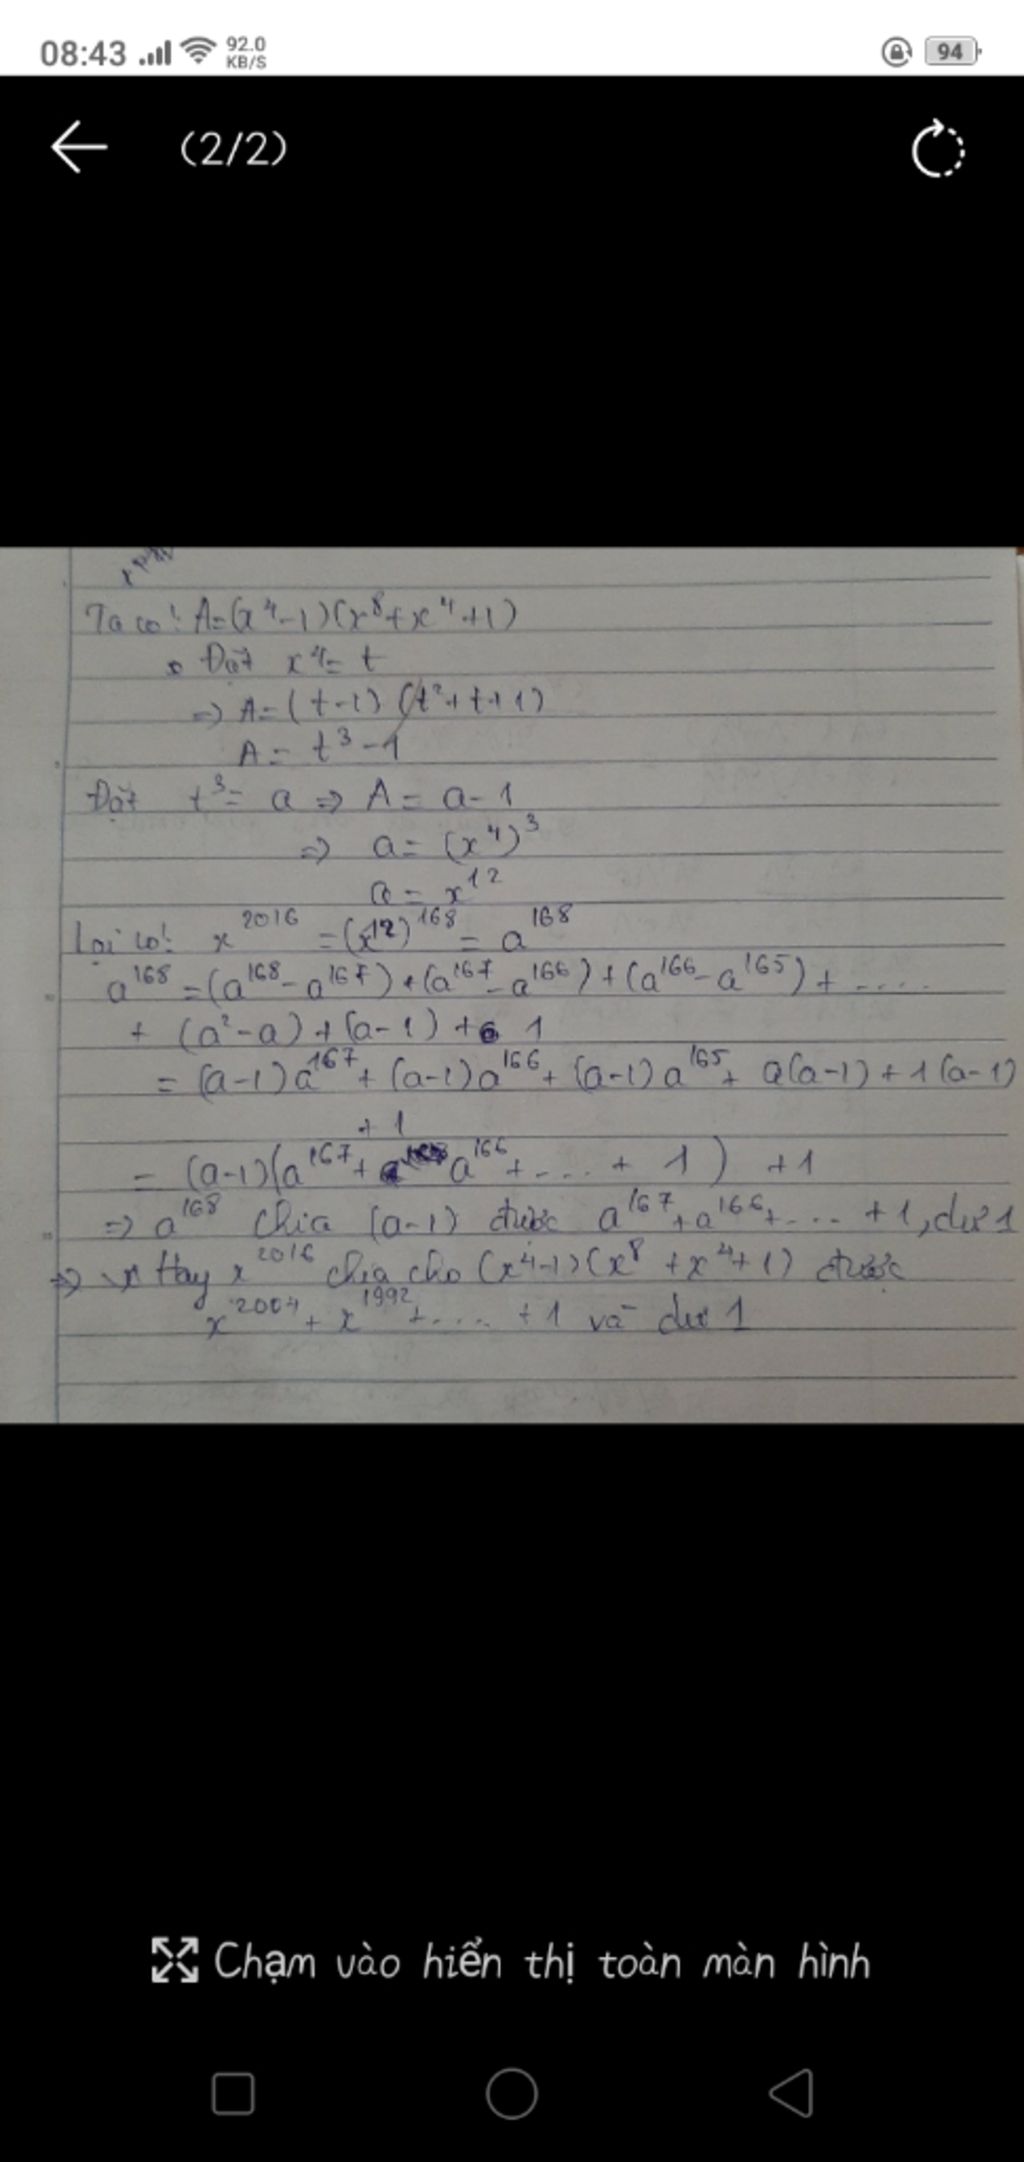 08:43 92.0 KB/S 94
(2/2)
Ta có: A=(x⁴-1)(x⁸+x⁴+1)
Đặt x⁴= t
=> A=(t-1)(t²+t+1)
A= t³-1
Đặt t³= a => A= a-1
=> a= (x⁴)³
a= x¹²
Lại có: x²⁰¹⁶ =(x¹²)¹⁶⁸= a¹⁶⁸
a¹⁶⁸=(a¹⁶⁸-a¹⁶⁷)+(a¹⁶⁷-a¹⁶⁶)+(a¹⁶⁶-a¹⁶⁵)+.....
+ (a²-a)+(a-1)+ 1
= (a-1)a¹⁶⁷+(a-1)a¹⁶⁶+(a-1)a¹⁶⁵+ a(a-1)+1(a-1)
+1
= (a-1)(a¹⁶⁷+ a¹⁶⁶+....+ 1) +1
=> a¹⁶⁸ chia (a-1) được a¹⁶⁷+a¹⁶⁶+.... +1, dư 1
=> Hay x²⁰¹⁶ chia cho (x⁴-1)(x⁸+x⁴+1) được
x²⁰⁰⁴+ x¹⁹⁹²+.... +1 và dư 1
Chạm vào hiển thị toàn màn hình